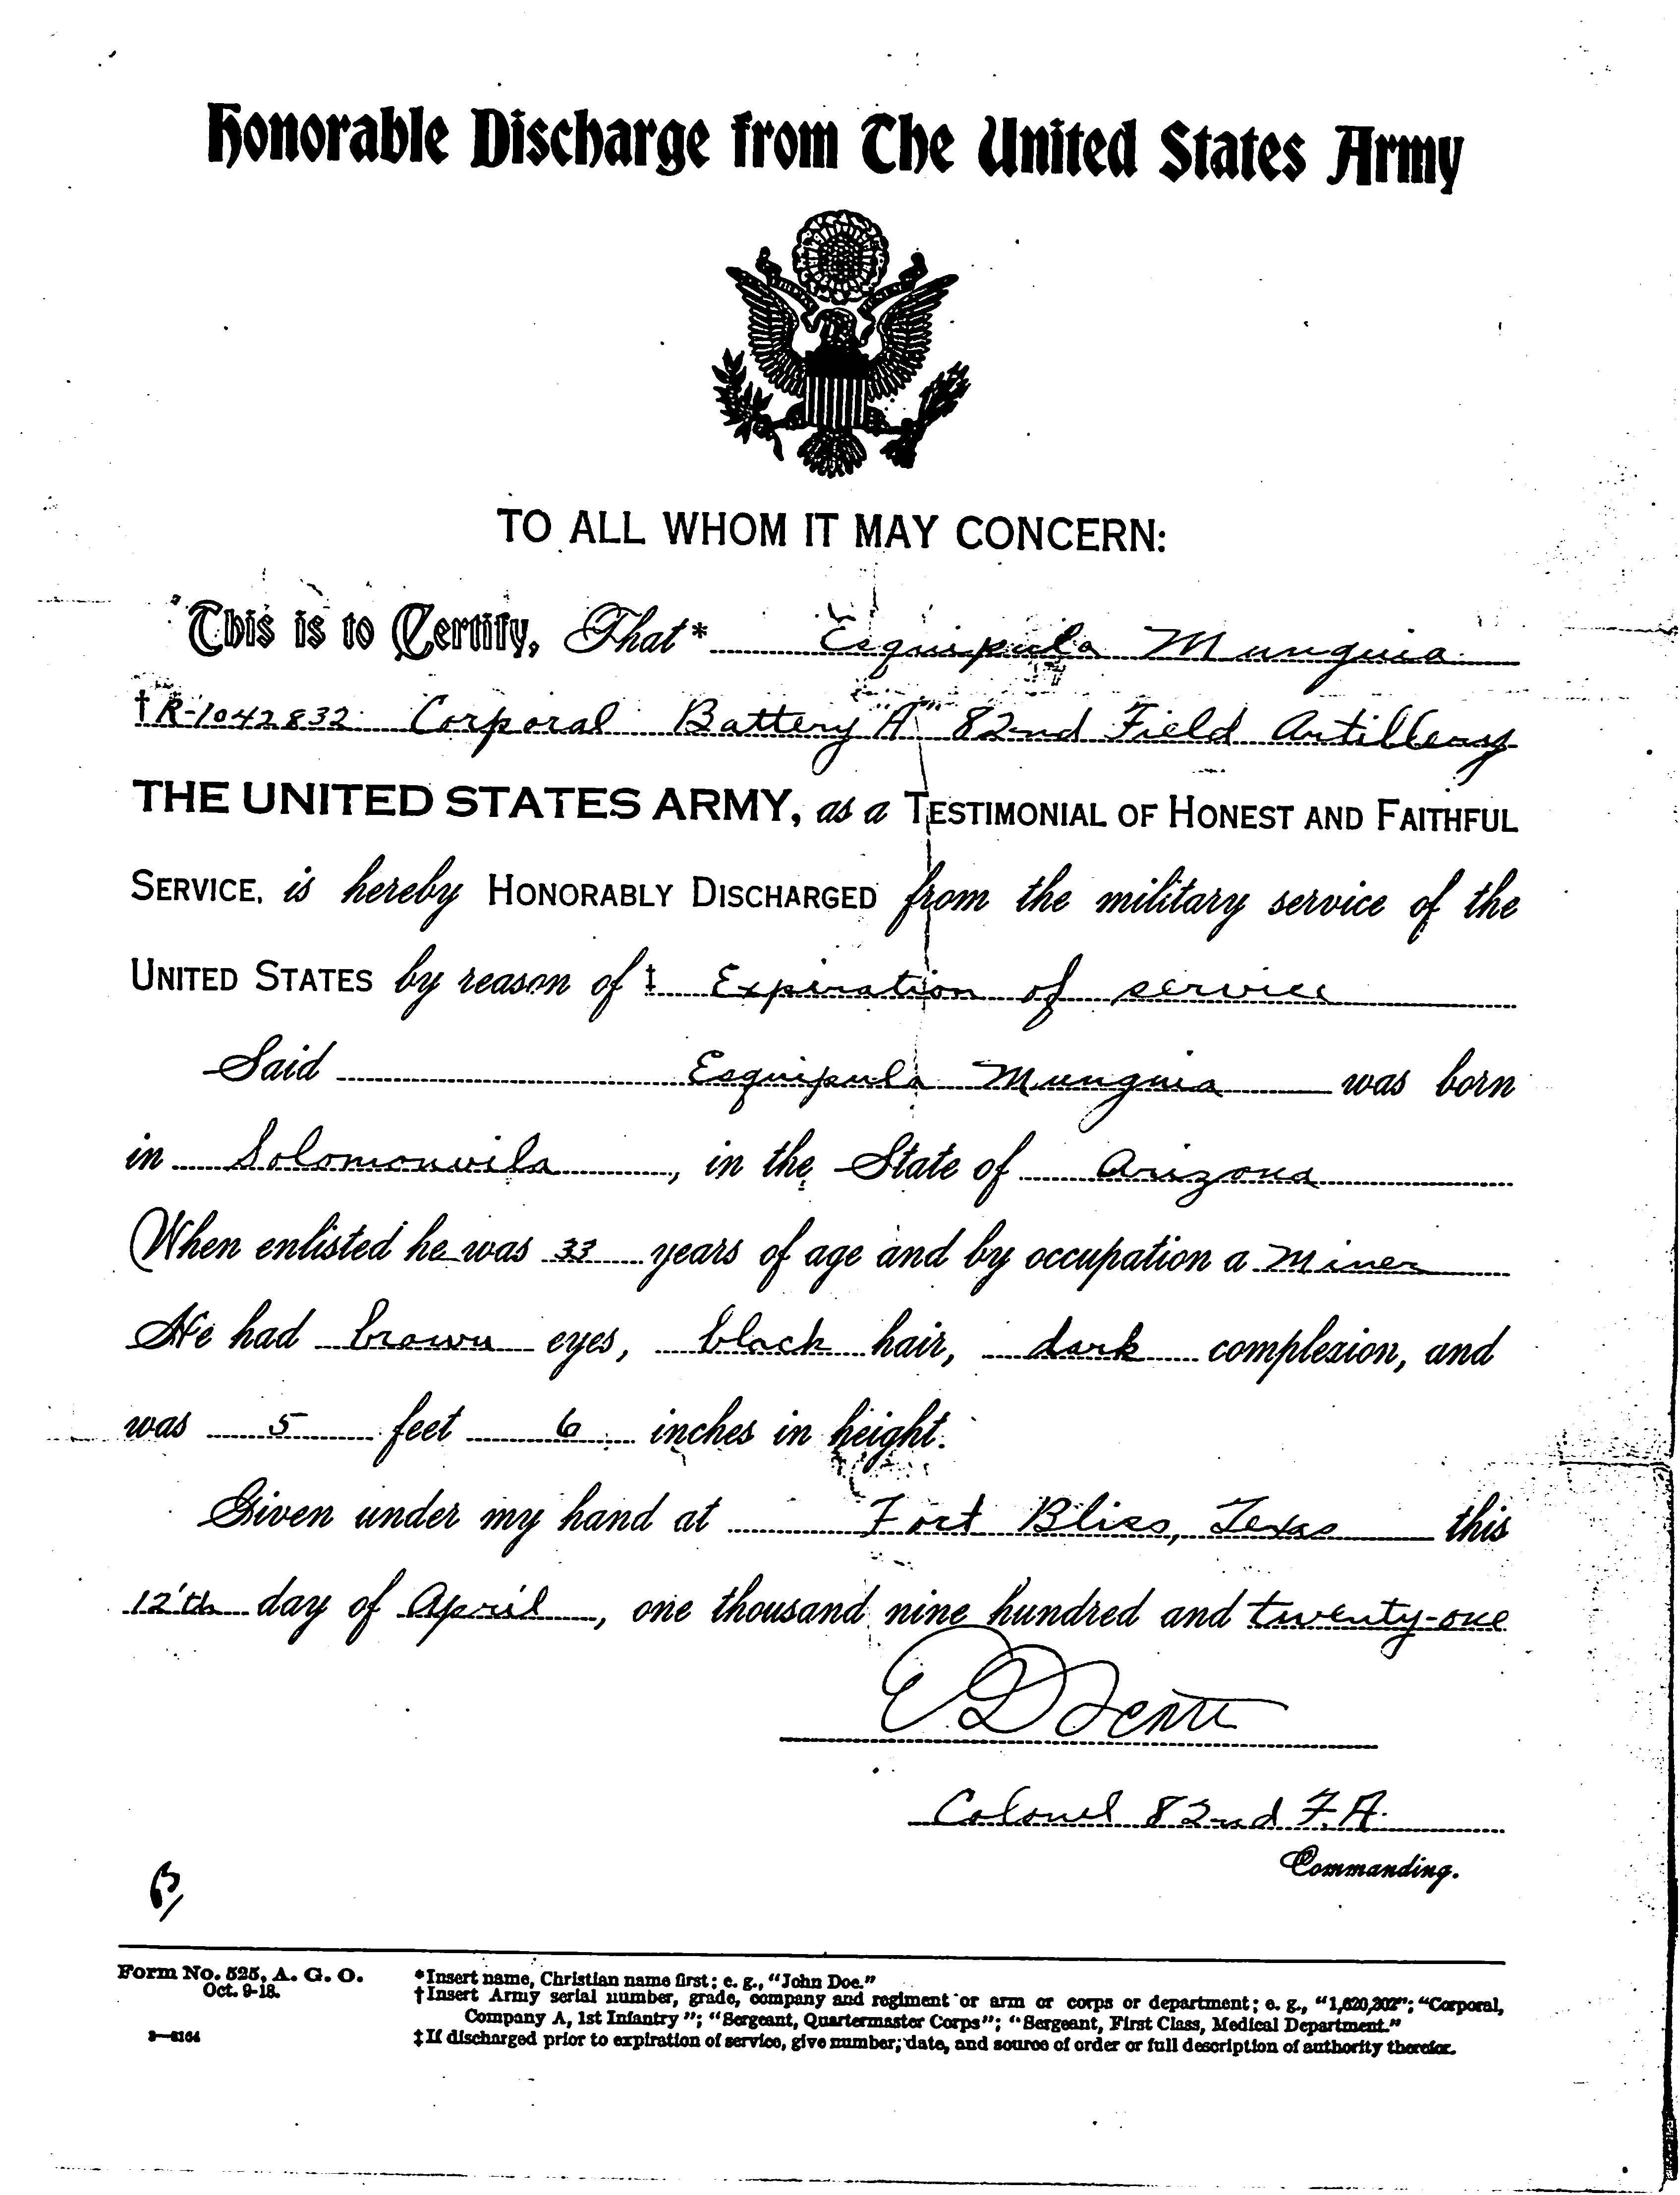 Honorable Discharge from The United States Army
TO ALL WHOM IT MAY CONCERN:
This is to Certify, That* Esquipula Munguia
†R-1042832 Corporal Battery A 82nd Field Artillery
THE UNITED STATES ARMY, as a TESTIMONIAL OF HONEST AND FAITHFUL
SERVICE, is hereby HONORABLY DISCHARGED from the military service of the
UNITED STATES by reason of ‡ Expiration of service
Said Esquipula Munguia was born
in Solomonvila, in the State of Arizona
When enlisted he was 33 years of age and by occupation a Miner
He had brown eyes, black hair, dark complexion, and
was 5 feet 6 inches in height.
Given under my hand at Fort Bliss, Texas this
12'th day of April, one thousand nine hundred and twenty-one
Colonel 82nd F.A.
Commanding.
Form No. 525, A. G. O.
Oct. 9-18.
3—3164
*Insert name, Christian name first; e. g., "John Doe."
†Insert Army serial number, grade, company and regiment or arm or corps or department; e. g., "1,620,302"; "Corporal,
Company A, 1st Infantry"; "Sergeant, Quartermaster Corps"; "Sergeant, First Class, Medical Department."
‡If discharged prior to expiration of service, give number, date, and source of order or full description of authority therefor.